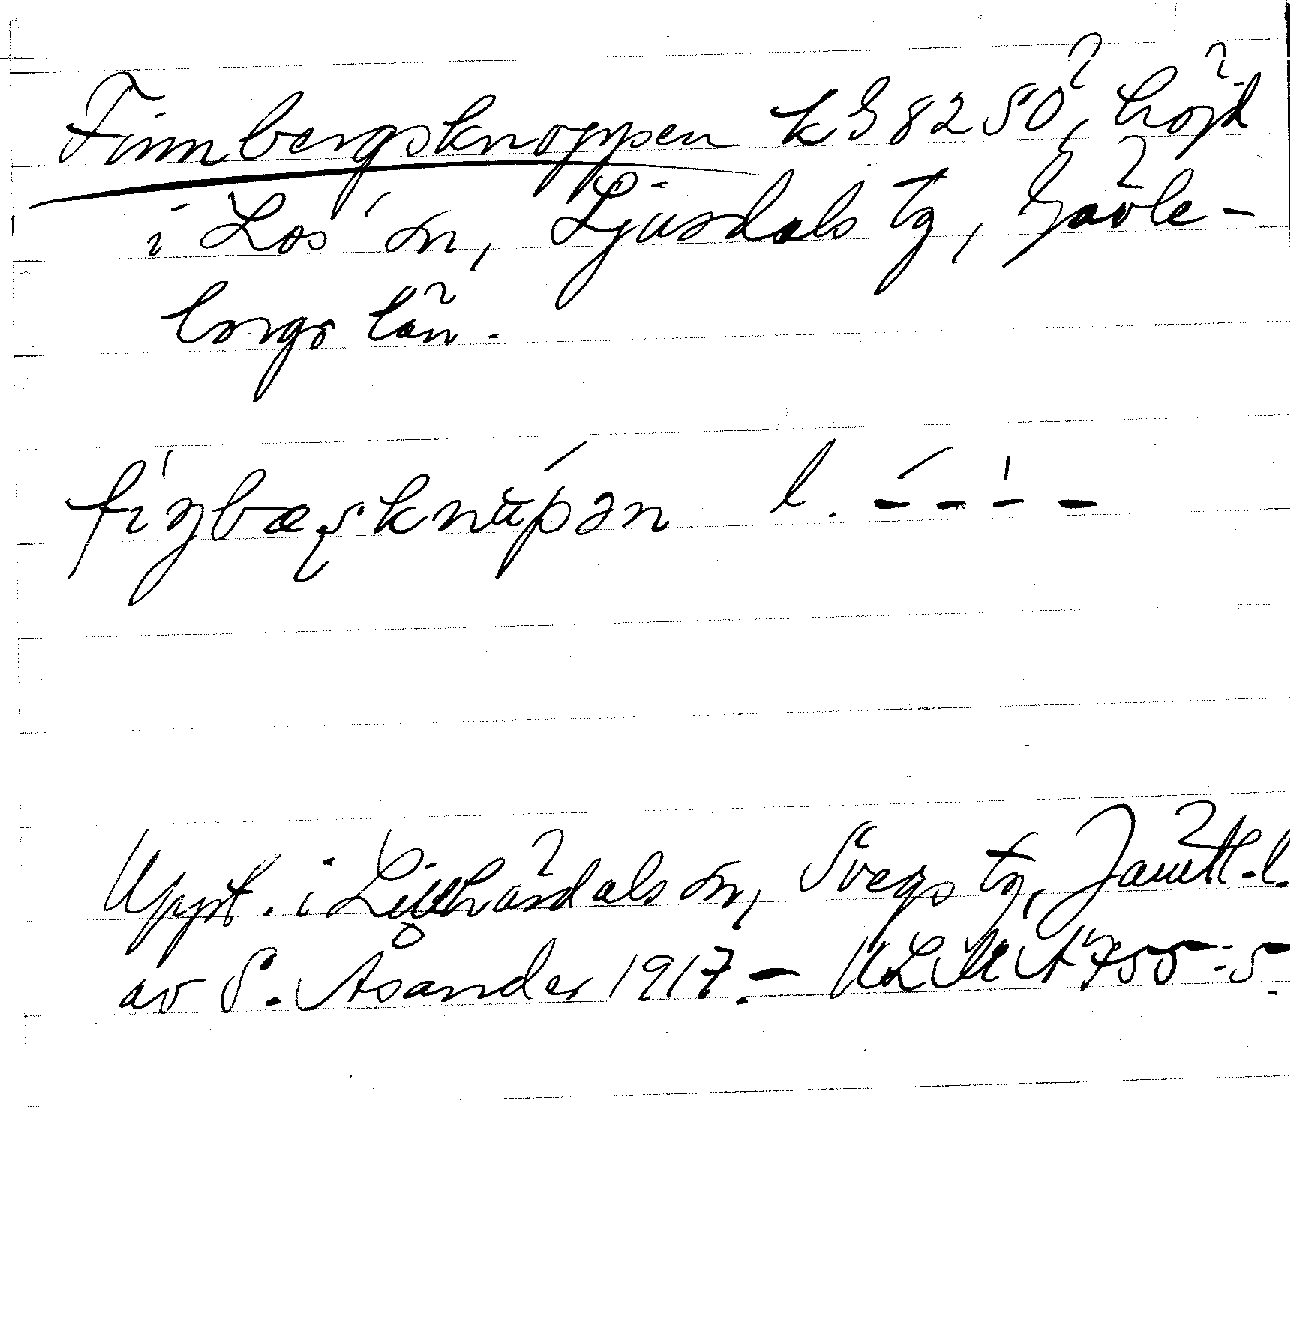 Finnbergsknoppen k G 8250, höjd
i Los' sn, Ljusdals tg, Gävle-
borgs län.
l. - - - -
Uppt. i Lillhärdals sn, Svegs tg, Jämtl. l.
av S. Asander 1917. - ULMA 755:5.